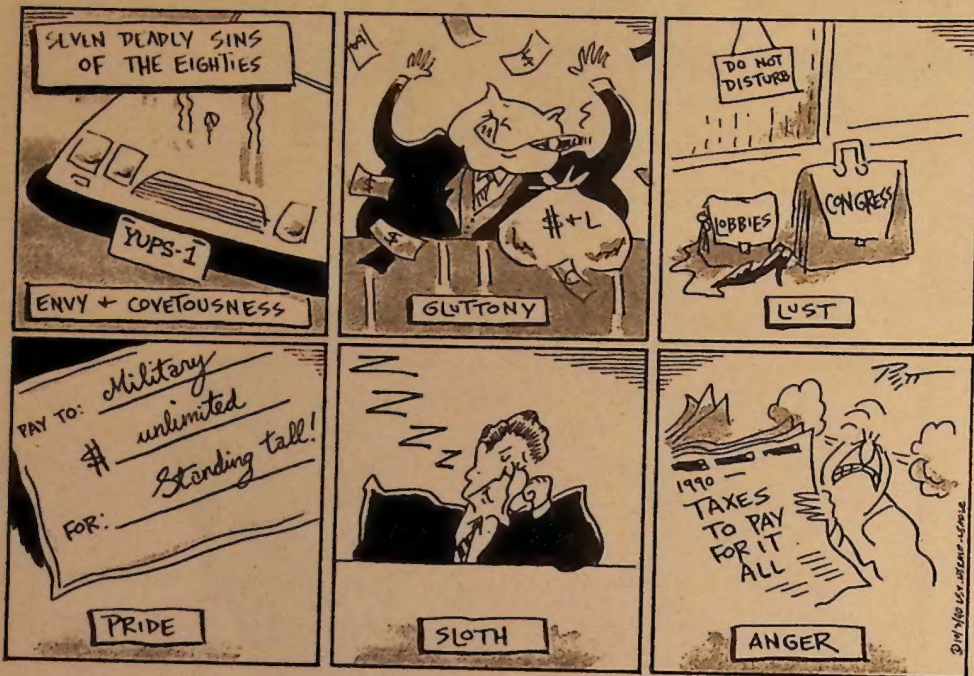 SEVEN DEADLY SINS
OF THE EIGHTIES
YUPS-1
ENVY + COVETOUSNESS
$
$
$
$ + L
GLUTTONY
DO NOT
DISTURB
LOBBIES
CONGRESS
LUST
PAY TO: Military
$ unlimited
Standing tall!
FOR:
PRIDE
Z
Z
Z
Z
SLOTH
1990
TAXES
TO PAY
FOR IT
ALL
ANGER